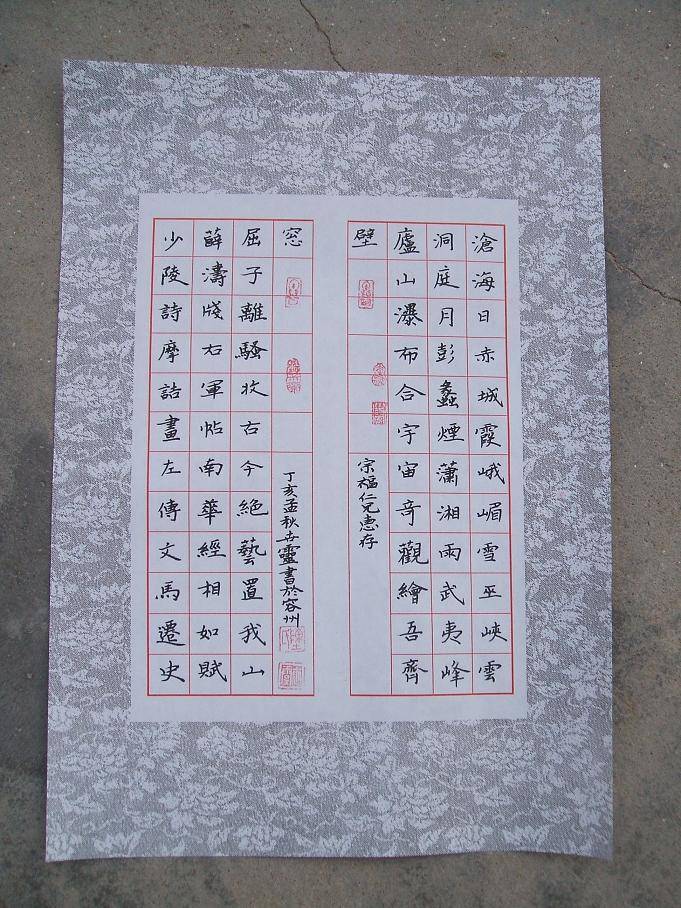 滄海日赤城霞峨嵋雪巫峽雲
洞庭月彭蠡煙瀟湘雨武夷峰
廬山瀑布合宇宙奇觀繪吾齊
壁
宗福仁兄惠存
少陵詩摩詰畫左傳文馬遷史
薛濤牋右軍帖南華經相如賦
屈子離騷收古今絶藝置我山
窓
丁亥孟秋世靈書於容州